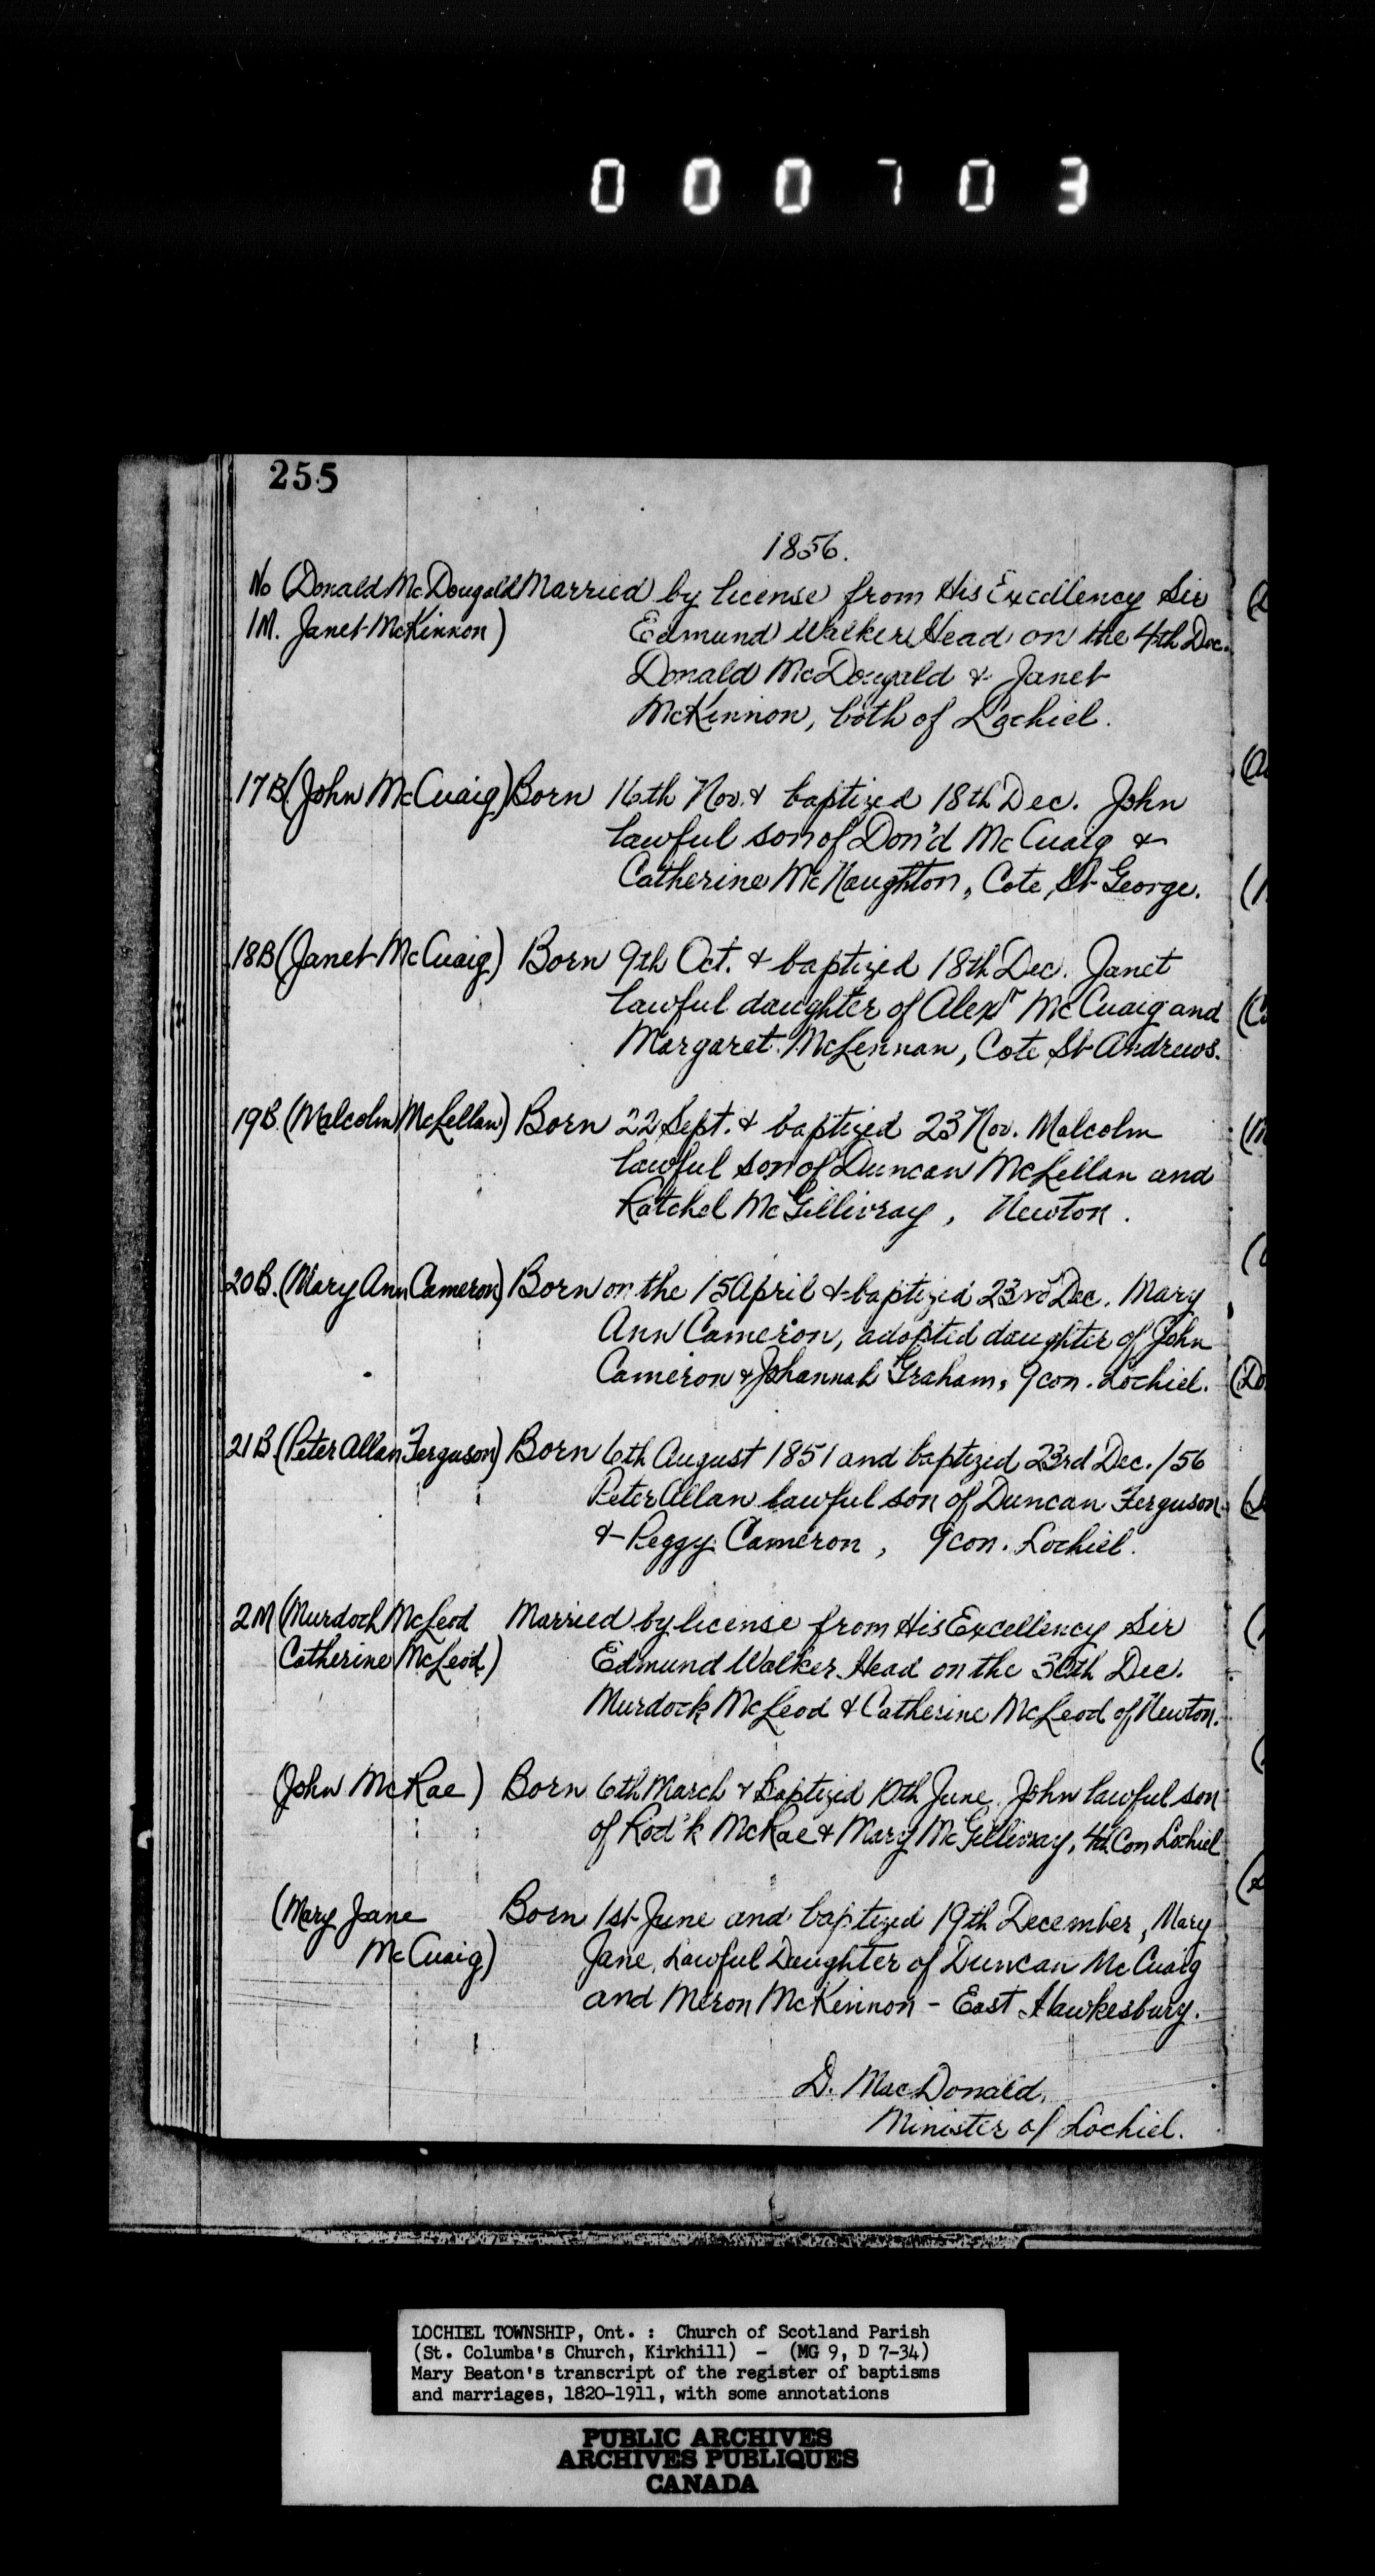 000703
255
1856.
No (Donald McDougald Married by license from His Excellency Sir
1M. Janet McKinnon) Edmund Walker Head on the 4th Dec.
Donald McDougald & Janet
McKinnon, both of Lochiel.
17B (John McCuaig) Born 16th Nov. & baptized 18th Dec. John
lawful son of Don'd McCuaig &
Catherine McNaughton, Cote St George.
18B (Janet McCuaig) Born 9th Oct. & baptized 18th Dec. Janet
lawful daughter of Alexr McCuaig and
Margaret McLennan, Cote St Andrews.
19B. (Malcolm McLellan) Born 22 Sept. & baptized 23 Nov. Malcolm
lawful son of Duncan McLellan and
Ratchel McGillivray, Newton.
20B. (Mary Ann Cameron) Born on the 15 April & baptized 23rd Dec. Mary
Ann Cameron, adopted daughter of John
Cameron & Johannah Graham, 9 con. Lochiel.
21B. (Peter Allan Ferguson) Born 6th August 1851 and baptized 23rd Dec. /56
Peter Allan lawful son of Duncan Ferguson
& Peggy Cameron, 9 con. Lochiel.
2M (Murdoch McLeod Married by license from His Excellency Sir
Catherine McLeod.) Edmund Walker Head on the 30th Dec.
Murdock McLeod & Catherine McLeod of Newton.
(John McRae) Born 6th March & Baptized 10th June. John lawful son
of Rod'k McRae & Mary McGillivray, 4th Con Lochiel
(Mary Jane Born 1st June and baptized 19th December, Mary
McCuaig) Jane, Lawful Daughter of Duncan McCuaig
and Meron McKinnon - East Hawkesbury.
D. MacDonald,
Minister of Lochiel.
LOCHIEL TOWNSHIP, Ont. : Church of Scotland Parish
(St. Columba's Church, Kirkhill) - (MG 9, D 7-34)
Mary Beaton's transcript of the register of baptisms
and marriages, 1820-1911, with some annotations
PUBLIC ARCHIVES
ARCHIVES PUBLIQUES
CANADA